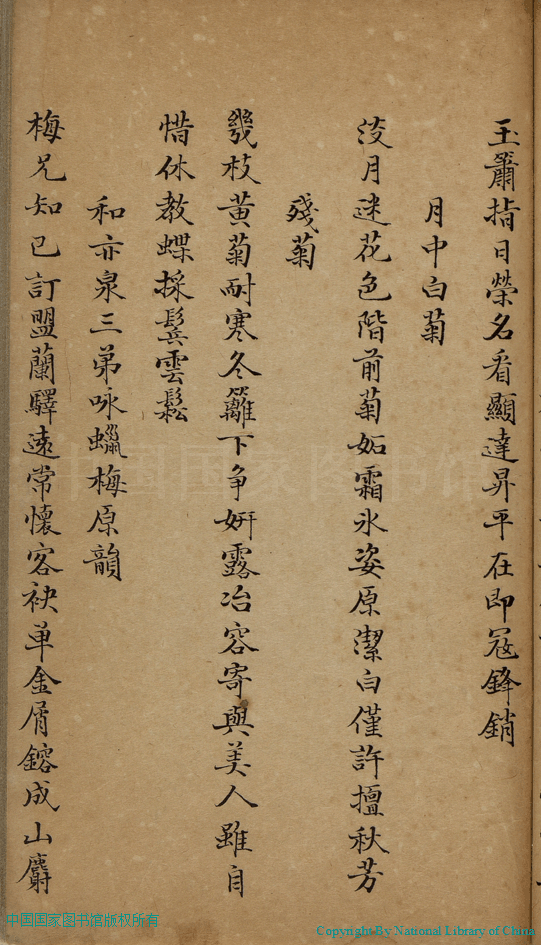 玉簫指日榮名看顯達昇平在即冦鋒銷
月中白菊
淡月迷花色階前菊如霜氷姿原潔白僅許擅秋芳
殘菊
幾枝黃菊耐寒冬籬下争姸露冶容寄與美人雖自
惜休教蝶採鬂雲鬆
和亦泉三弟咏蠟梅原韻
梅兄知已訂盟蘭驛遠常懷客袂单金屑鎔成山麝
中国国家图书馆
中国国家图书馆版权所有
Copyright By National Library of China